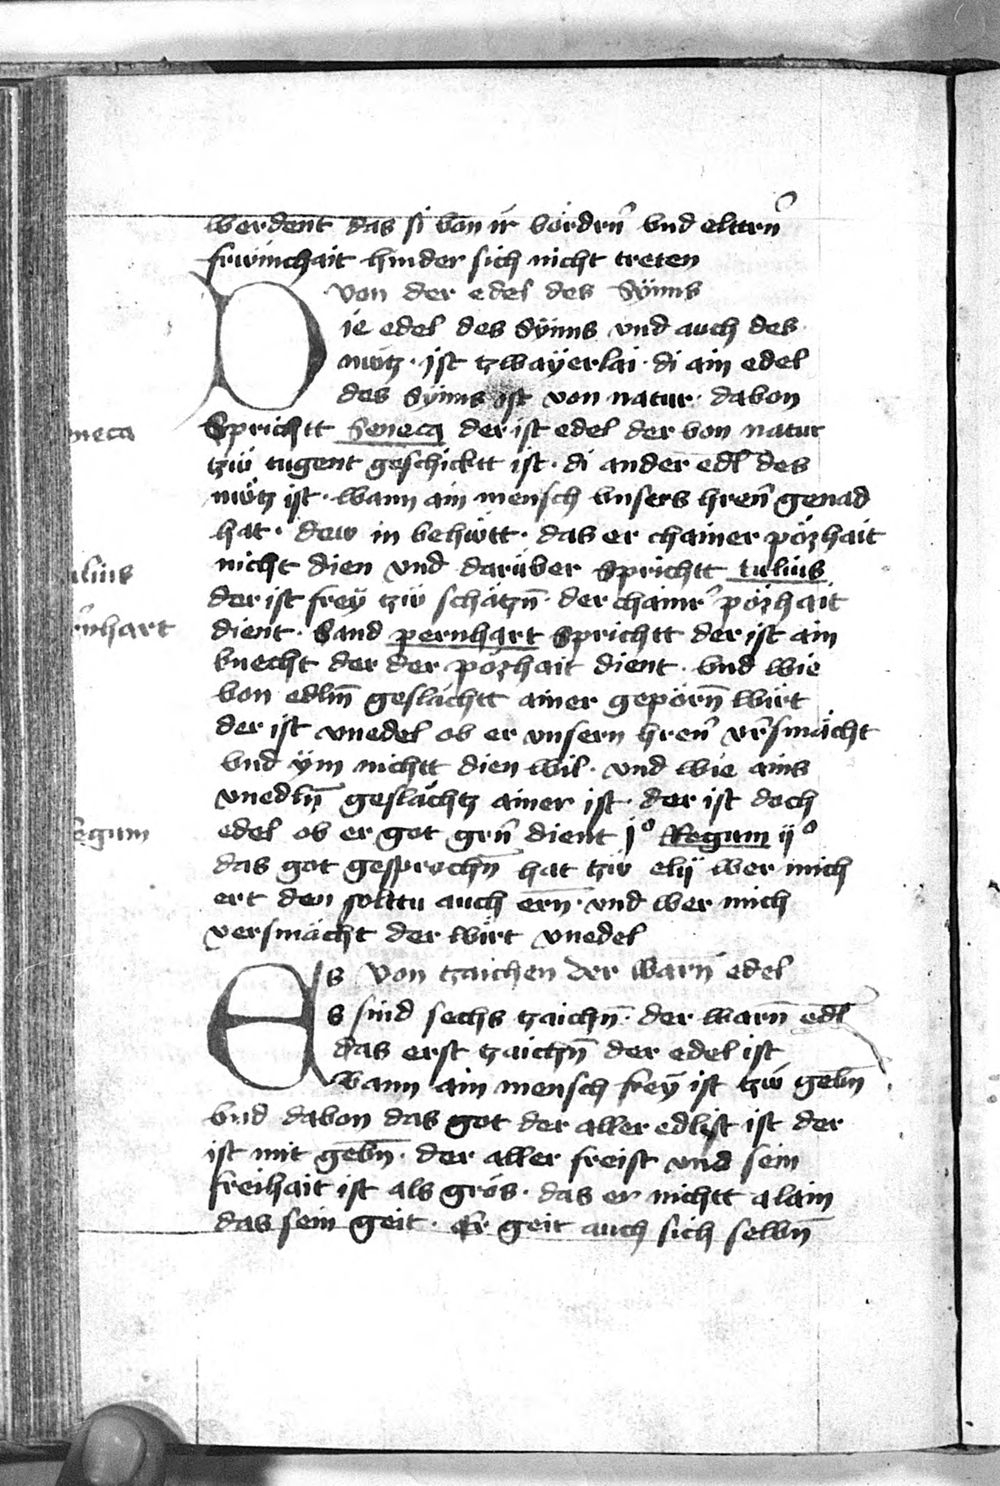 werdent das si von ir vordrn̄ vnd elttrn̄
frümchait hinder sich nicht treten
von der edel des Sÿnns
Die edel des Sÿnns vnd auch des
mütz · ist tzwaÿerlai · di ain edel
des Sÿnns ist von natur · dauon
neca
Sprichtt Seneca der ist edel der von natur
tzü tugent geschicktt ist · di ander edl des
mütz ist · wann ain mensch vnsers hren̄ genad
hat · dew in behütt · das er chainer pözhait
nicht dien vnd darüber Sprichtt tulius
ulius
der ist freÿ tzü schätzn̄ · der chainr̄ pözhait
rnhart
dient · Sand pernhart Sprichtt der ist ain
knecht der der pözhait dient · vnd wie
von edlm̄ geslächtt ainer geporn̄ wirt
der ist vnedel ob er vnsern hren̄ vr̄smächt
vnd ÿm nichtt dien wil · vnd wie ains
vnedln̄ geslächtz ainer ist · der ist doch
egum
edel ob er got grn̄ dient jº Regum ijº
das got gesprochn̄ hat tzü elij wer mich
ert den solttu auch ern̄ · vnd wer mich
versmächt der wirt vnedel
von tzaichen der warn̄ edel
Es sind sechs tzaichn̄ · der warn̄ edl
das erst tzaichn̄ der edel ist
wann ain mensch freÿ ist tzü gebn̄
vnd dauon das got der aller edlist ist der
ist mit gebn̄ · der aller freist vnd sein
freihait ist als gros · das er nichtt alain
das sein geit · Er geit auch sich selbn̄